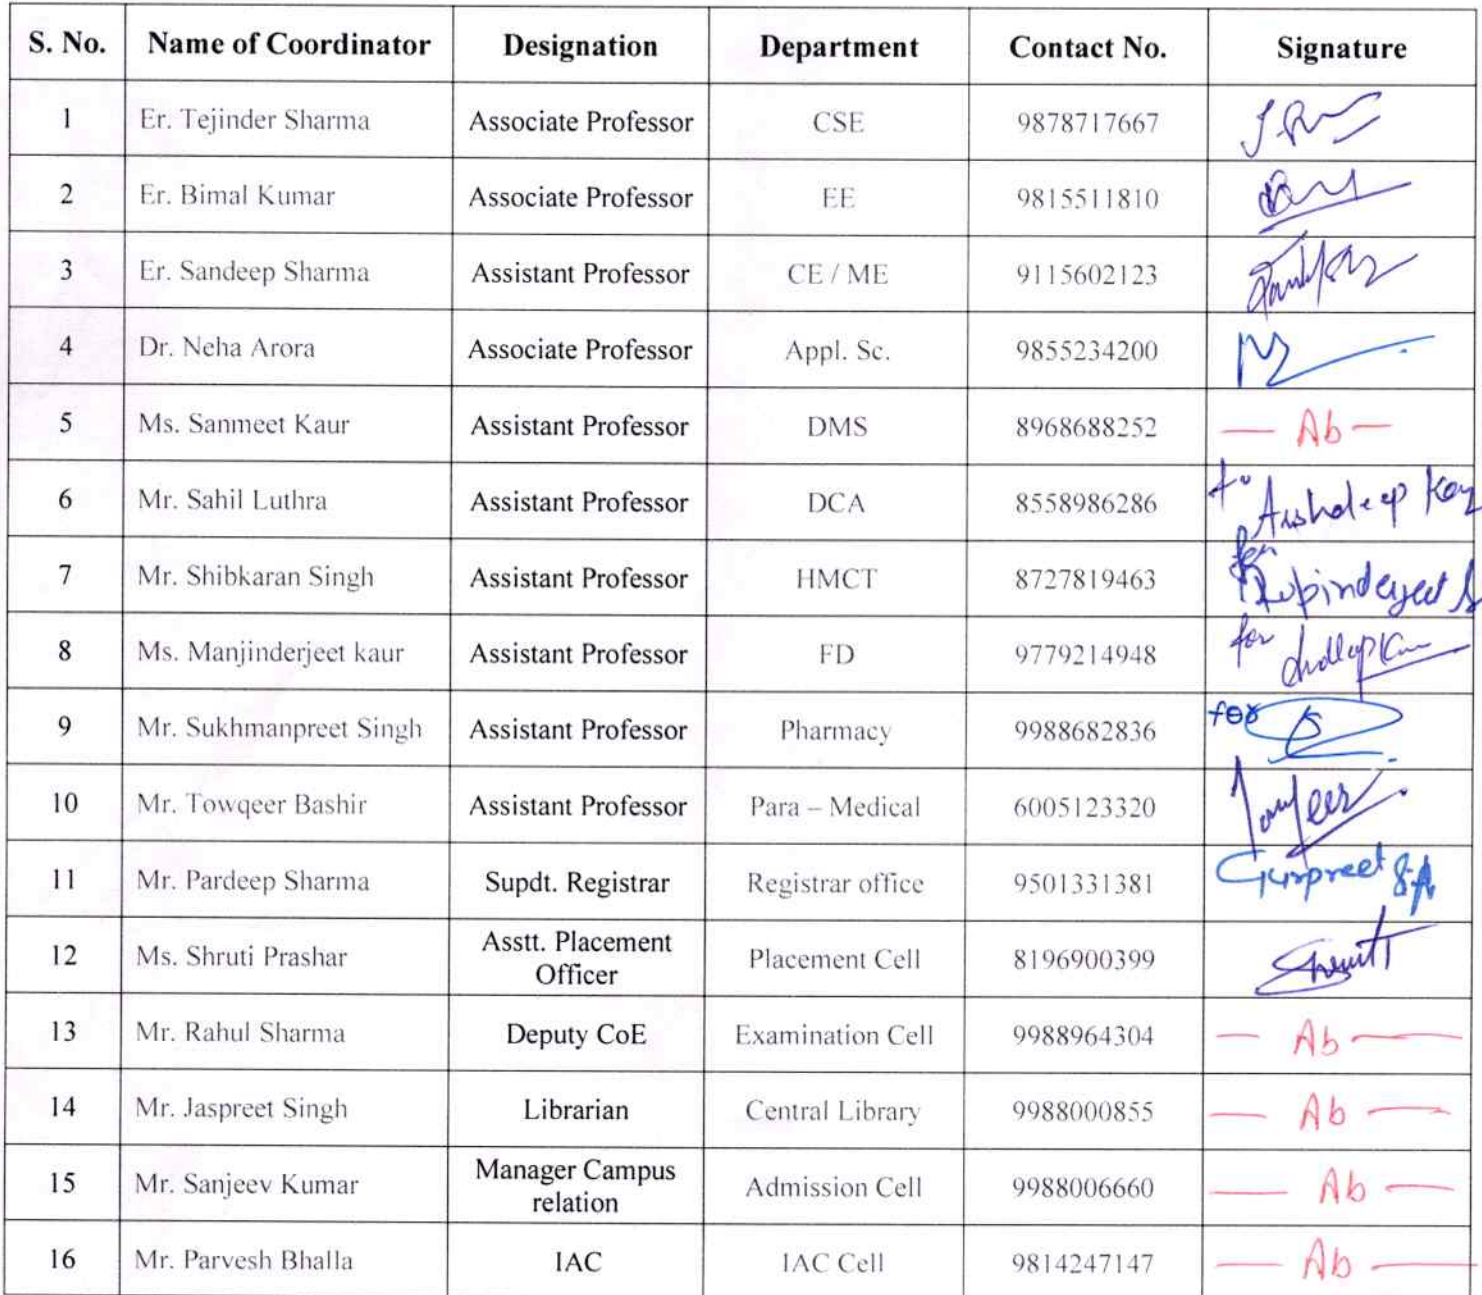 S. No. Name of Coordinator Designation Department Contact No. Signature
1 Er. Tejinder Sharma Associate Professor CSE 9878717667
2 Er. Bimal Kumar Associate Professor EE 9815511810
3 Er. Sandeep Sharma Assistant Professor CE / ME 9115602123
4 Dr. Neha Arora Associate Professor Appl. Sc. 9855234200
5 Ms. Sanmeet Kaur Assistant Professor DMS 8968688252 — Ab —
6 Mr. Sahil Luthra Assistant Professor DCA 8558986286
7 Mr. Shibkaran Singh Assistant Professor HMCT 8727819463 for
8 Ms. Manjinderjeet kaur Assistant Professor FD 9779214948 for
9 Mr. Sukhmanpreet Singh Assistant Professor Pharmacy 9988682836 for
10 Mr. Towqeer Bashir Assistant Professor Para – Medical 6005123320
11 Mr. Pardeep Sharma Supdt. Registrar Registrar office 9501331381 Gurpreet
12 Ms. Shruti Prashar Asstt. Placement Placement Cell 8196900399 Shruti
Officer
13 Mr. Rahul Sharma Deputy CoE Examination Cell 9988964304 — Ab —
14 Mr. Jaspreet Singh Librarian Central Library 9988000855 — Ab —
15 Mr. Sanjeev Kumar Manager Campus Admission Cell 9988006660 — Ab —
relation
16 Mr. Parvesh Bhalla IAC IAC Cell 9814247147 — Ab —